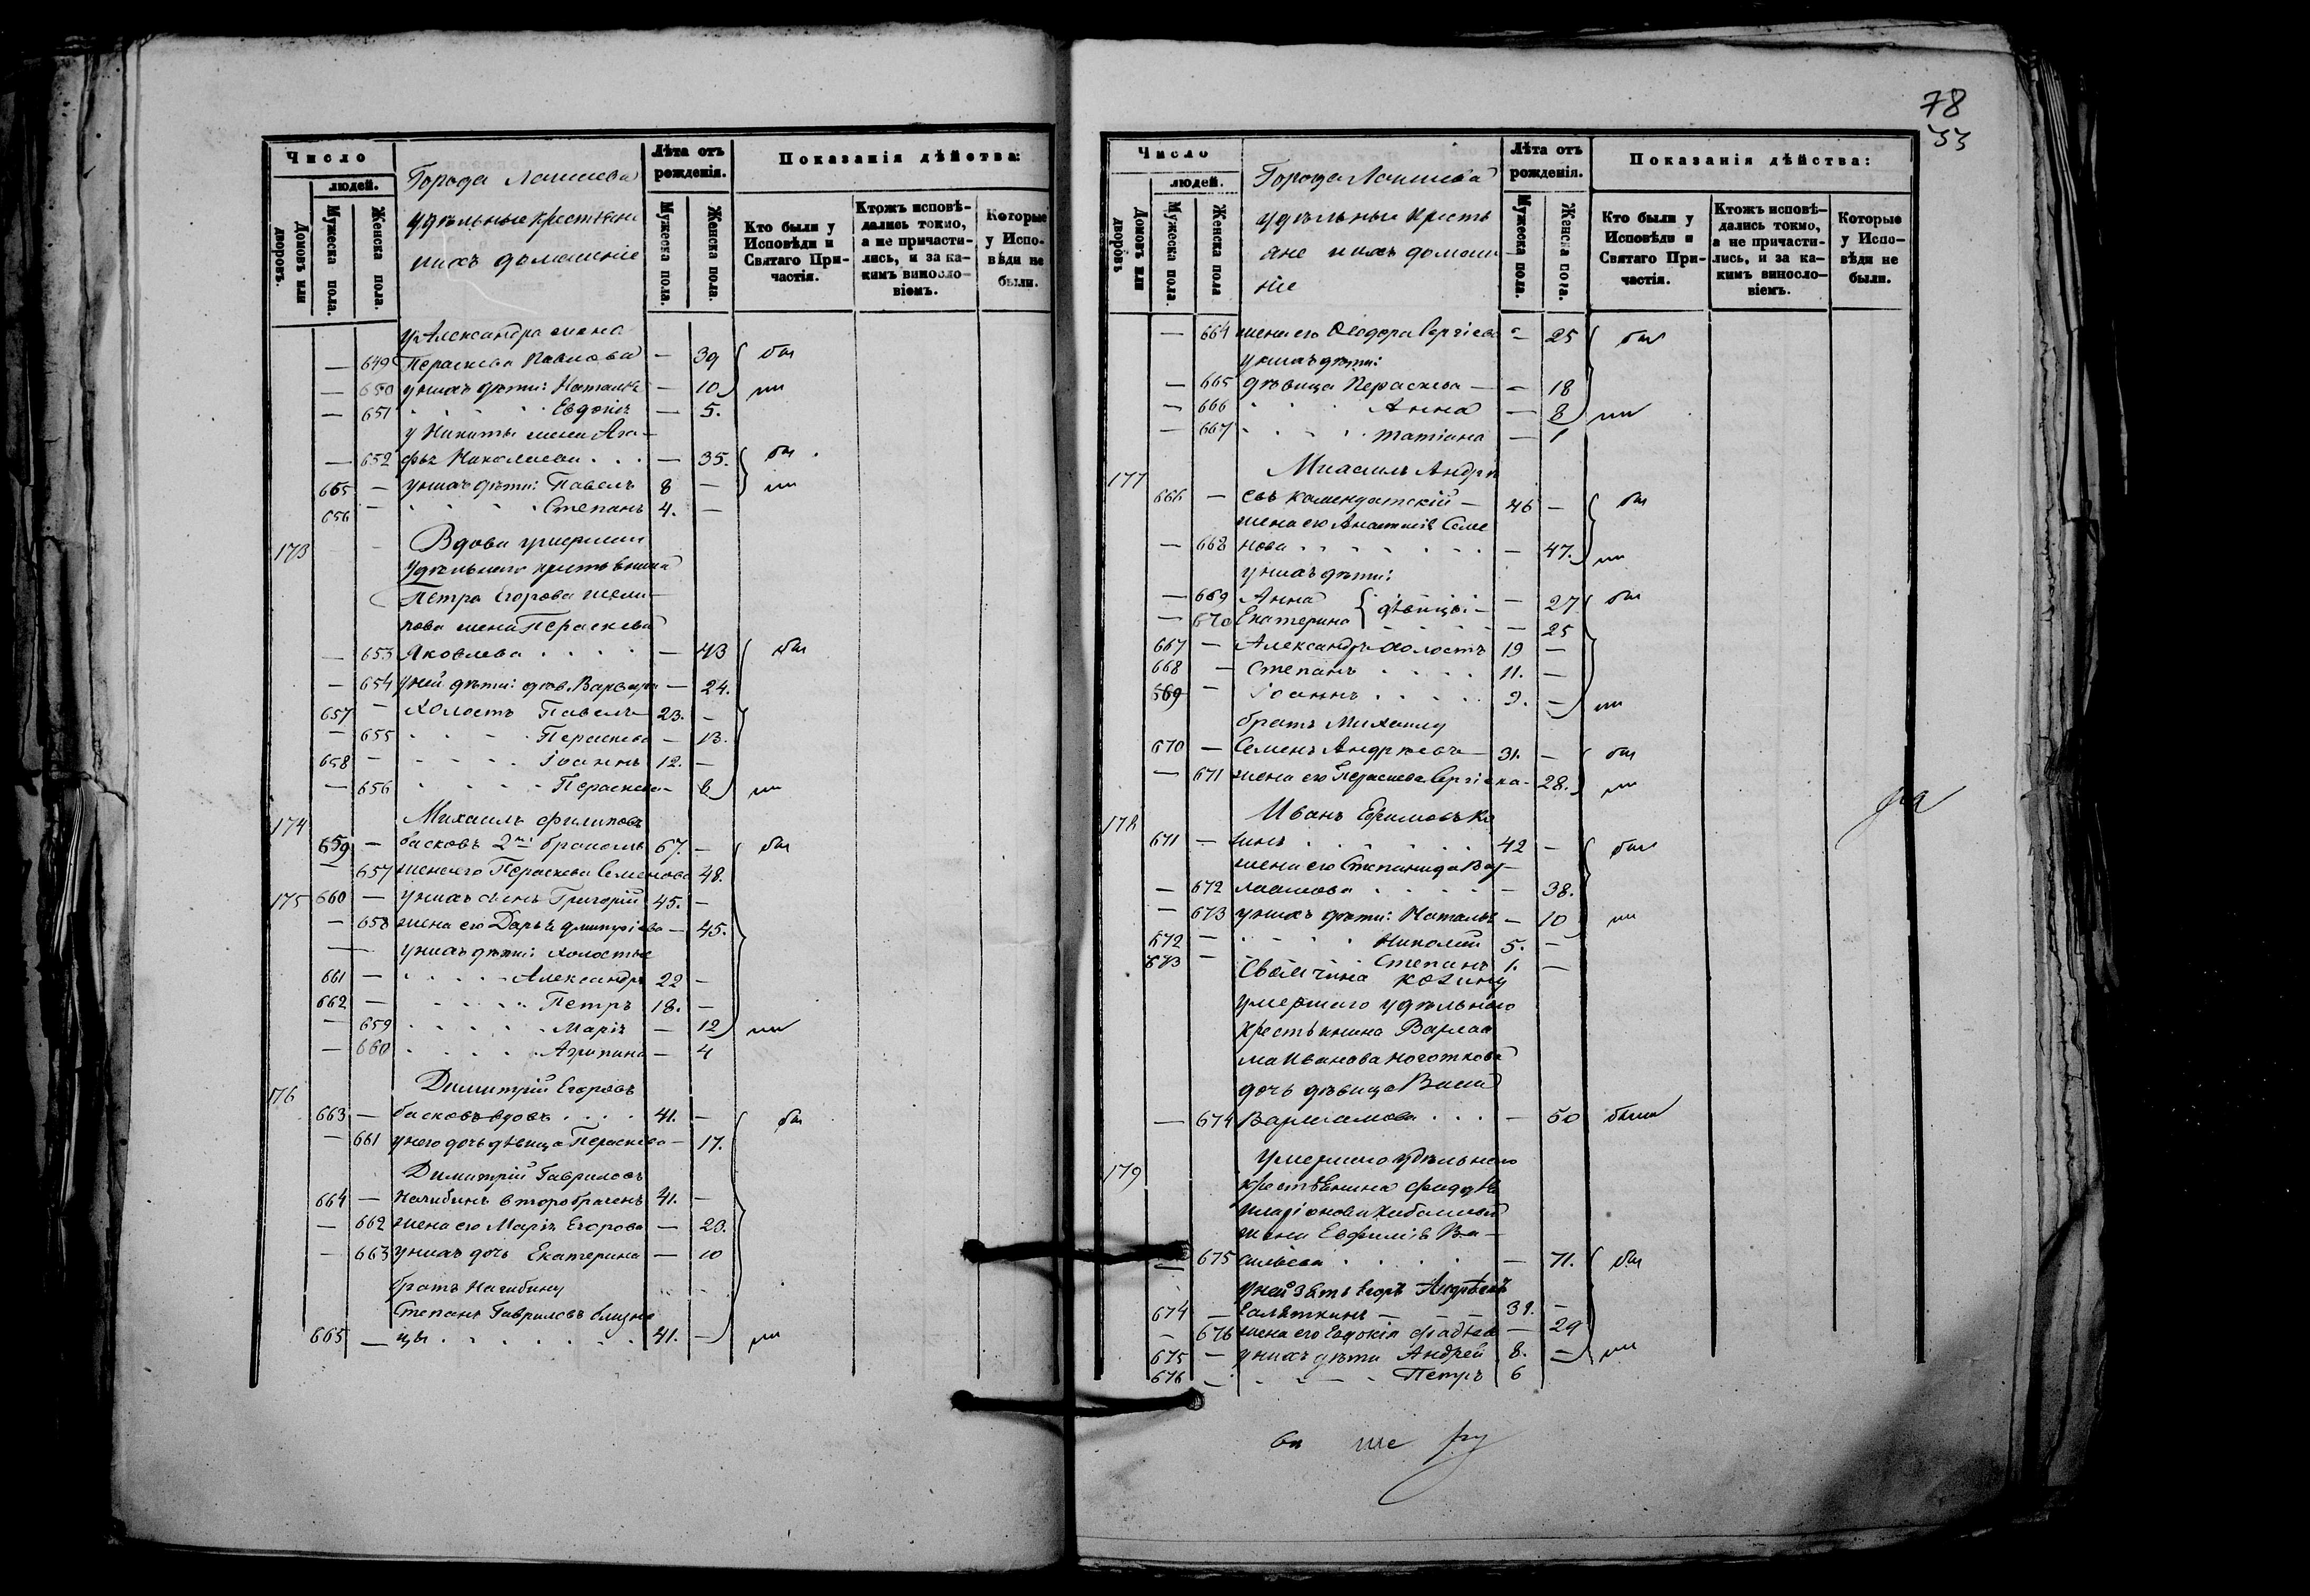 Число
людей.
Домовъ или дворовъ.
Мужеска пола.
Женска пола.
Города Лаишева
удѣльные крестьяне
ихъ домашніе
Лѣта отъ рожденія.
Мужеска пола.
Женска пола.
Показанія дѣйства:
Кто были у Исповѣди и Святаго Причастія.
Ктожъ исповѣдались токмо, а не причастились, и за какимъ винословіемъ.
Которые у Исповѣди не были.
у Александра жена
— 649 Параскева Павлова — 39 бы
— 650 у нихъ дѣти: Наталія — 10 ли
— 651 Евдокія — 5.
у Никиты жена Ага-
— 652 фья Николаева — 35. бы
655 — у нихъ дѣти: Павелъ 8 — ли
656 — Степанъ 4. —
173 Вдова умершаго
удѣльнаго крестьянина
Петра Егорова
жена Параскева
— 653 Яковлева — 43 бы
— 654 у ней дѣти: дѣв. Варвара — 24.
657 — холостъ Павелъ 23. —
— 655 Параскева — 13.
658 — Іоаннъ 12. —
— 656 Параскева — 6 ли
174 Михаилъ Филиповъ
659 — басковъ 2мъ бракомъ 67. — бы
— 657 жена его Параскева Семенова 48.
175 660 — у нихъ сынъ Григорій 45. —
— 658 жена его Дарья Димитріева — 45.
у нихъ дѣти: холостые
661 — Александръ 22 —
662 — Петръ 18. —
— 659 Марія — 12 ли
— 660 Агрипина — 4
176 Димитрій Егоровъ
663 — басковъ вдовъ 41. — бы
— 661 у него дочь дѣвица Параскева — 17.
Димитрій Гавриловъ
664 — Нагибинъ второбраченъ 41. —
— 662 жена его Марія Егорова — 23.
— 663 у нихъ дочь Екатерина — 10
братъ Нагибину
Степанъ Гавриловъ близне
665 — цы 41. — ли
78
Число
людей.
Домовъ или дворовъ
Мужеска пола.
Женска пола
Города Лаишева
удѣльные кресть
яне и ихъ домаш
ніе
Лѣта отъ рожденія.
Мужеска пола.
Женска пола.
Показанія дѣйства:
Кто были у Исповѣди и Святаго Причастія.
Ктожъ исповѣдались токмо, а не причастились, и за какимъ винословіемъ.
Которые у Исповѣди не были.
— 664 жена его Ѳеодора Сергіева — 25 бы
у нихъ дѣти:
— 665 дѣвица Параскева — 18
— 666 Анна — 8 ли
— 667 Татіана — 1
177 Михаилъ Андре
666 — евъ Комендатскій 46 — бы
жена его Анастасія Семе
— 668 нова — 47. ли
у нихъ дѣти:
— 669 Анна — 27 бы
— 670 Екатерина { дѣвицы — 25
667 — Александръ холостъ 19 —
668 — Степанъ 11. —
669 — Іоаннъ 9. — ли
братъ Михаилу
670 — Семенъ Андреевъ 31. — бы
— 671 жена его Параскева Сергіева 28. ли
178 Иванъ Ефимовъ Ко
671 — зинъ 42 — бы
жена его Степанида Вар-
— 672 лаамова — 38.
— 673 у нихъ дѣти: Наталья — 10 ли
672 — Николай 5. —
673 — Степанъ 1. —
Своячина Козину
умершаго удѣльнаго
крестьянина Варлаа
ма Иванова Ноготкова
дочь дѣвица
— 674 Варлаамова — 50 была
179 Умершаго удѣльнаго
крестьянина Фаддѣя
жена Евфимія Ва-
— 675 сильева — 71. бы
у ней зять Егоръ Андрѣевъ
674 — 31. —
— 676 жена его Евдокія Фаддѣева — 29
675 — у нихъ дѣти Андрей 8. — ли
676 — Петръ 6